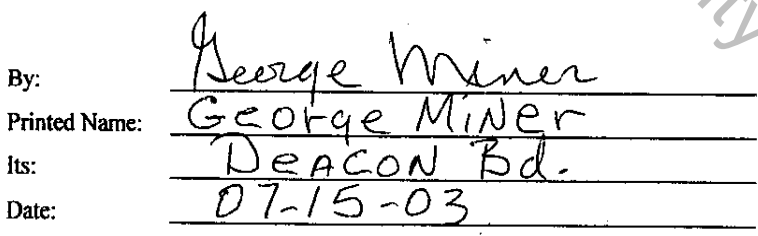 By: George Miner
Printed Name: George Miner
Its: Deacon Bd.
Date: 07-15-03